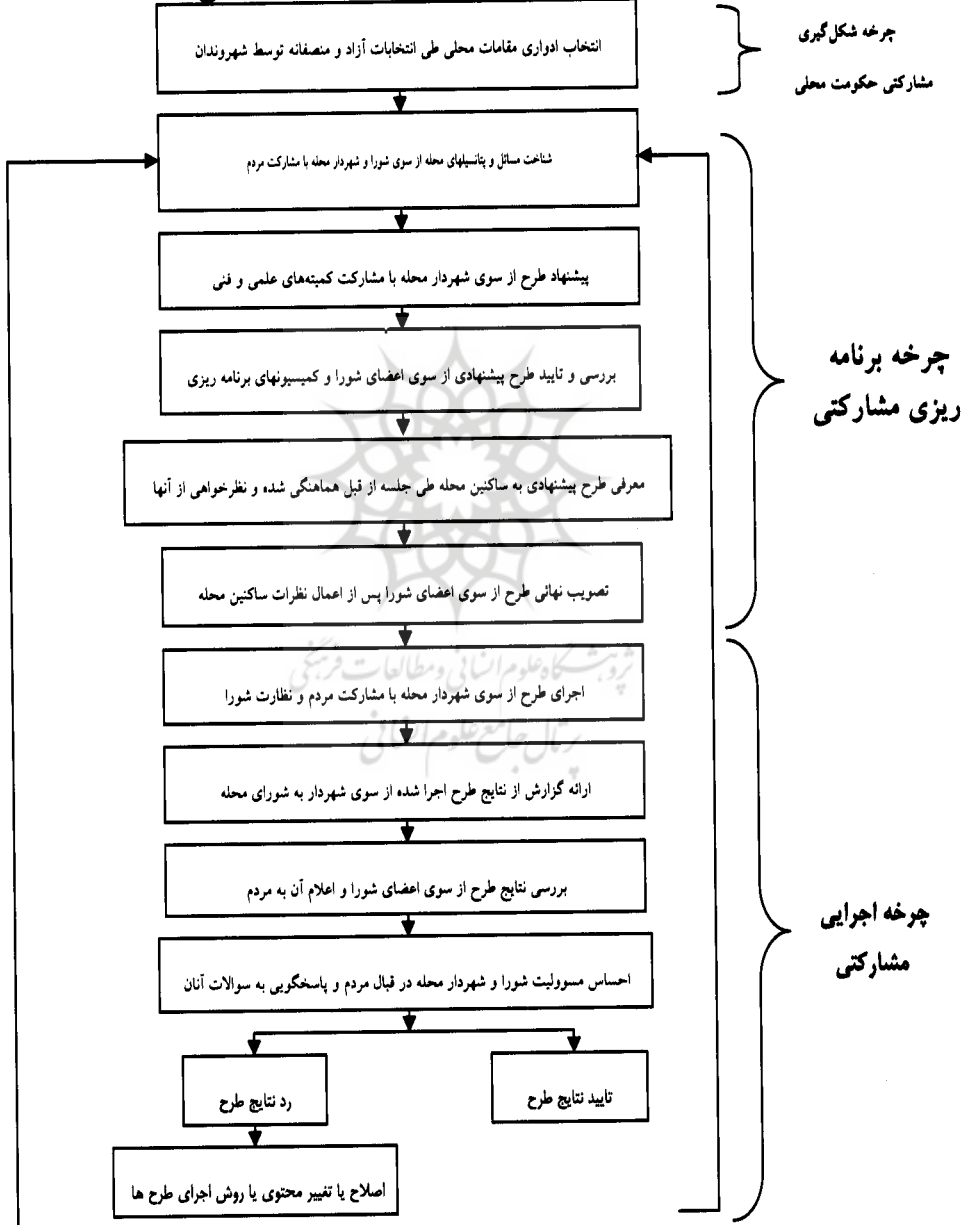 انتخاب ادواری مقامات محلی طی انتخابات آزاد و منصفانه توسط شهروندان
چرخه شکل‌گیری
مشارکتی حکومت محلی
شناخت مسائل و پتانسیلهای محله از سوی شورا و شهردار محله با مشارکت مردم
پیشنهاد طرح از سوی شهردار محله با مشارکت کمیته‌های علمی و فنی
بررسی و تایید طرح پیشنهادی از سوی اعضای شورا و کمیسیونهای برنامه ریزی
معرفی طرح پیشنهادی به ساکنین محله طی جلسه از قبل هماهنگی شده و نظرخواهی از آنها
تصویب نهائی طرح از سوی اعضای شورا پس از اعمال نظرات ساکنین محله
چرخه برنامه
ریزی مشارکتی
پژوهشگاه علوم انسانی و مطالعات فرهنگی
پرتال جامع علوم انسانی
اجرای طرح از سوی شهردار محله با مشارکت مردم و نظارت شورا
ارائه گزارش از نتایج طرح اجرا شده از سوی شهردار به شورای محله
بررسی نتایج طرح از سوی اعضای شورا و اعلام آن به مردم
احساس مسوولیت شورا و شهردار محله در قبال مردم و پاسخگویی به سوالات آنان
چرخه اجرایی
مشارکتی
تایید نتایج طرح
رد نتایج طرح
اصلاح یا تغییر محتوی یا روش اجرای طرح ها